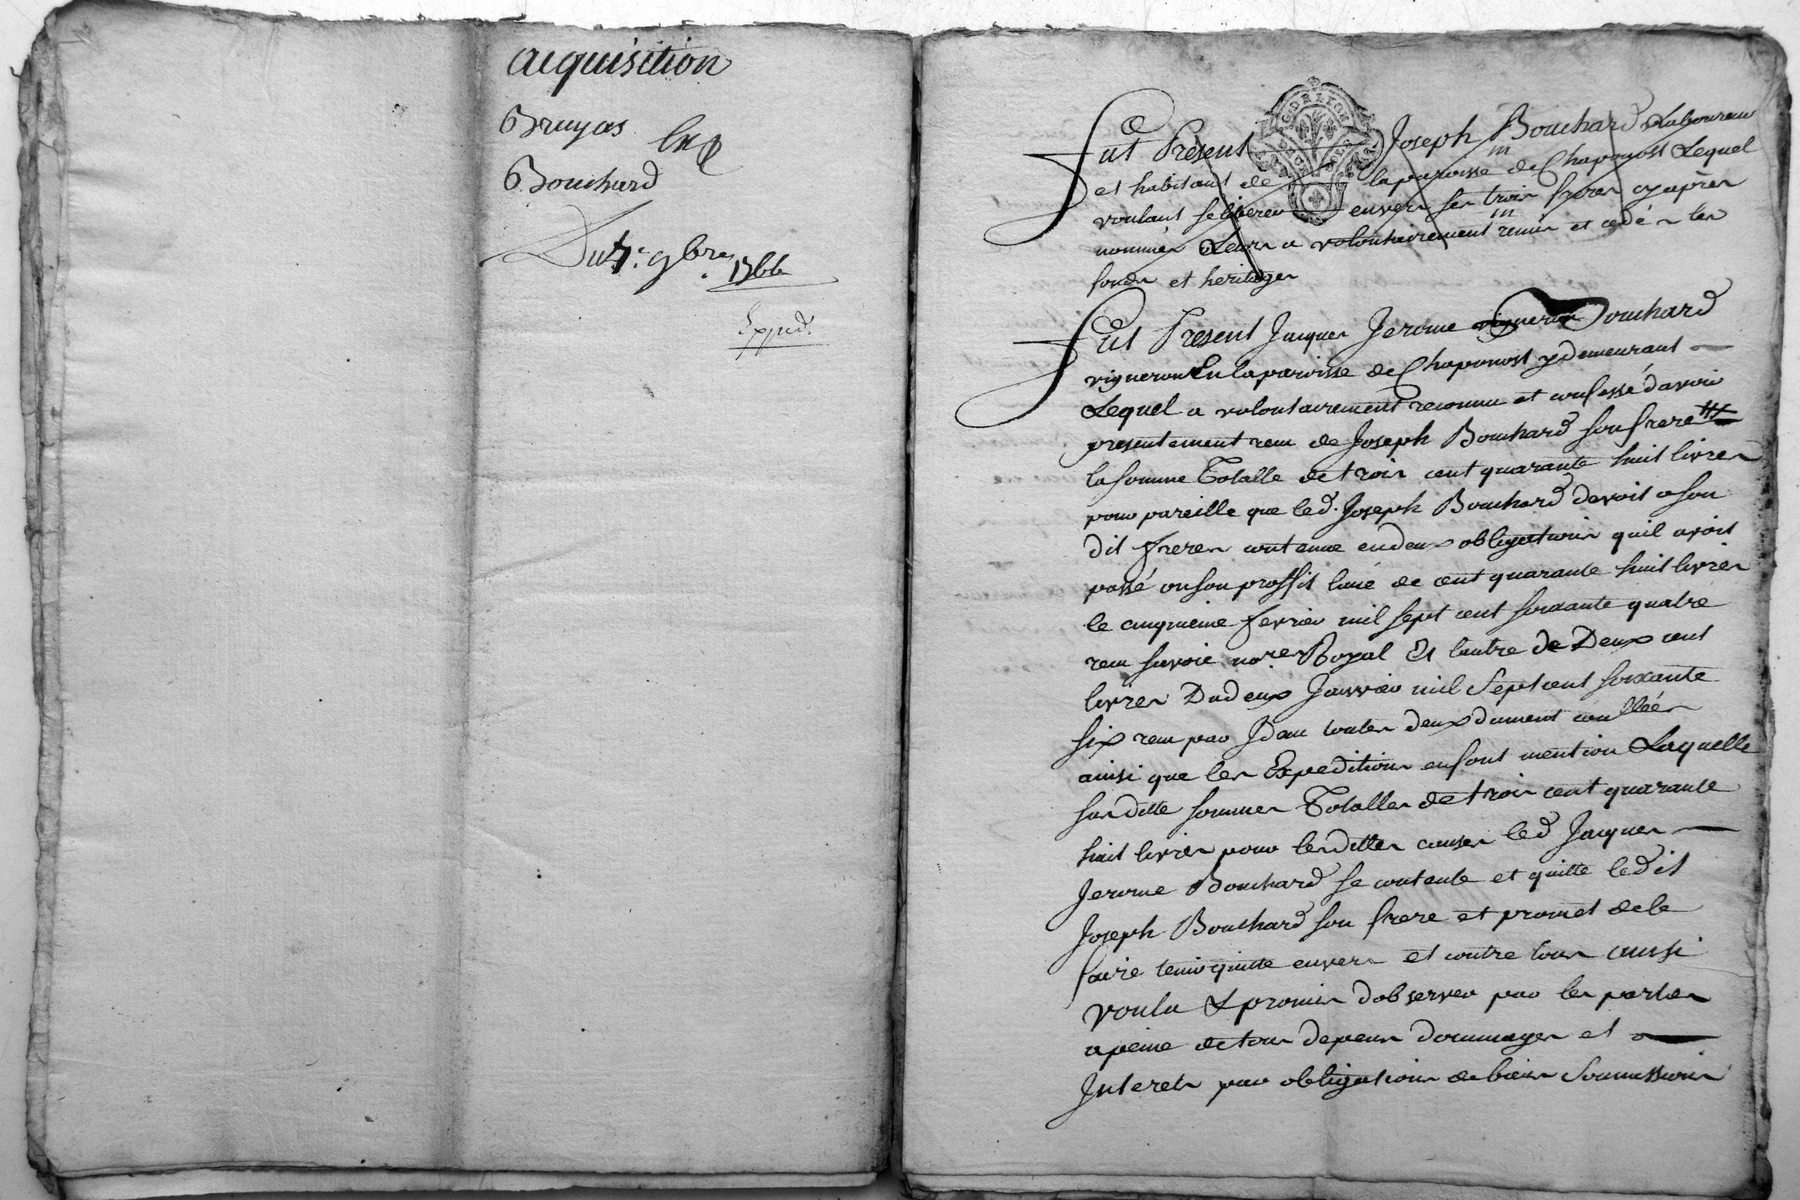 acquisition
Bruyas
Bouchard
Du 7e 9bre 1766
Expéd.
GDE LYON
Fut Present Joseph Bouchard Laboureur
et habitant de la paroisse de Chaponost Lequel
voulant se liberer envers ses trois freres cy après
nommés Leurs a volontairement remis et cedé les
fonds et heritages
Fut Present Jacques Jerome vigneron Bouchard
vigneron En la paroisse de Chaponost y demeurant
Lequel a volontairement reconnu et confessé d'avoir
presentement reçu de Joseph Bouchard son frere
la somme Totalle de trois cent quarante huit livres
pour pareille que led. Joseph Bouchard devoit a son
dit freres contenue en deux obligations quil avoit
passé en son proffit l'une de cent quarante huit livres
le cinquieme fevrier mil sept cent soixante quatre
reçu Savoie nore Royal Et lautre de Deux cent
livres Du deux Janvier mil Sept cent soixante
six reçu par Idem toutes deux dument conllées
ainsi que les Expeditions en font mention Laquelle
susditte sommes Totalles de trois cent quarante
huit livres pour lesdittes causes led Jacques
Jerome Bouchard se contente et quitte ledit
Joseph Bouchard son frere et promet de le
faire tenir quitte envers et contre tous aussi
voulu & promis d'observer par les parties
a peine de tous depens dommages et
Interets par obligations de biens Soumissions